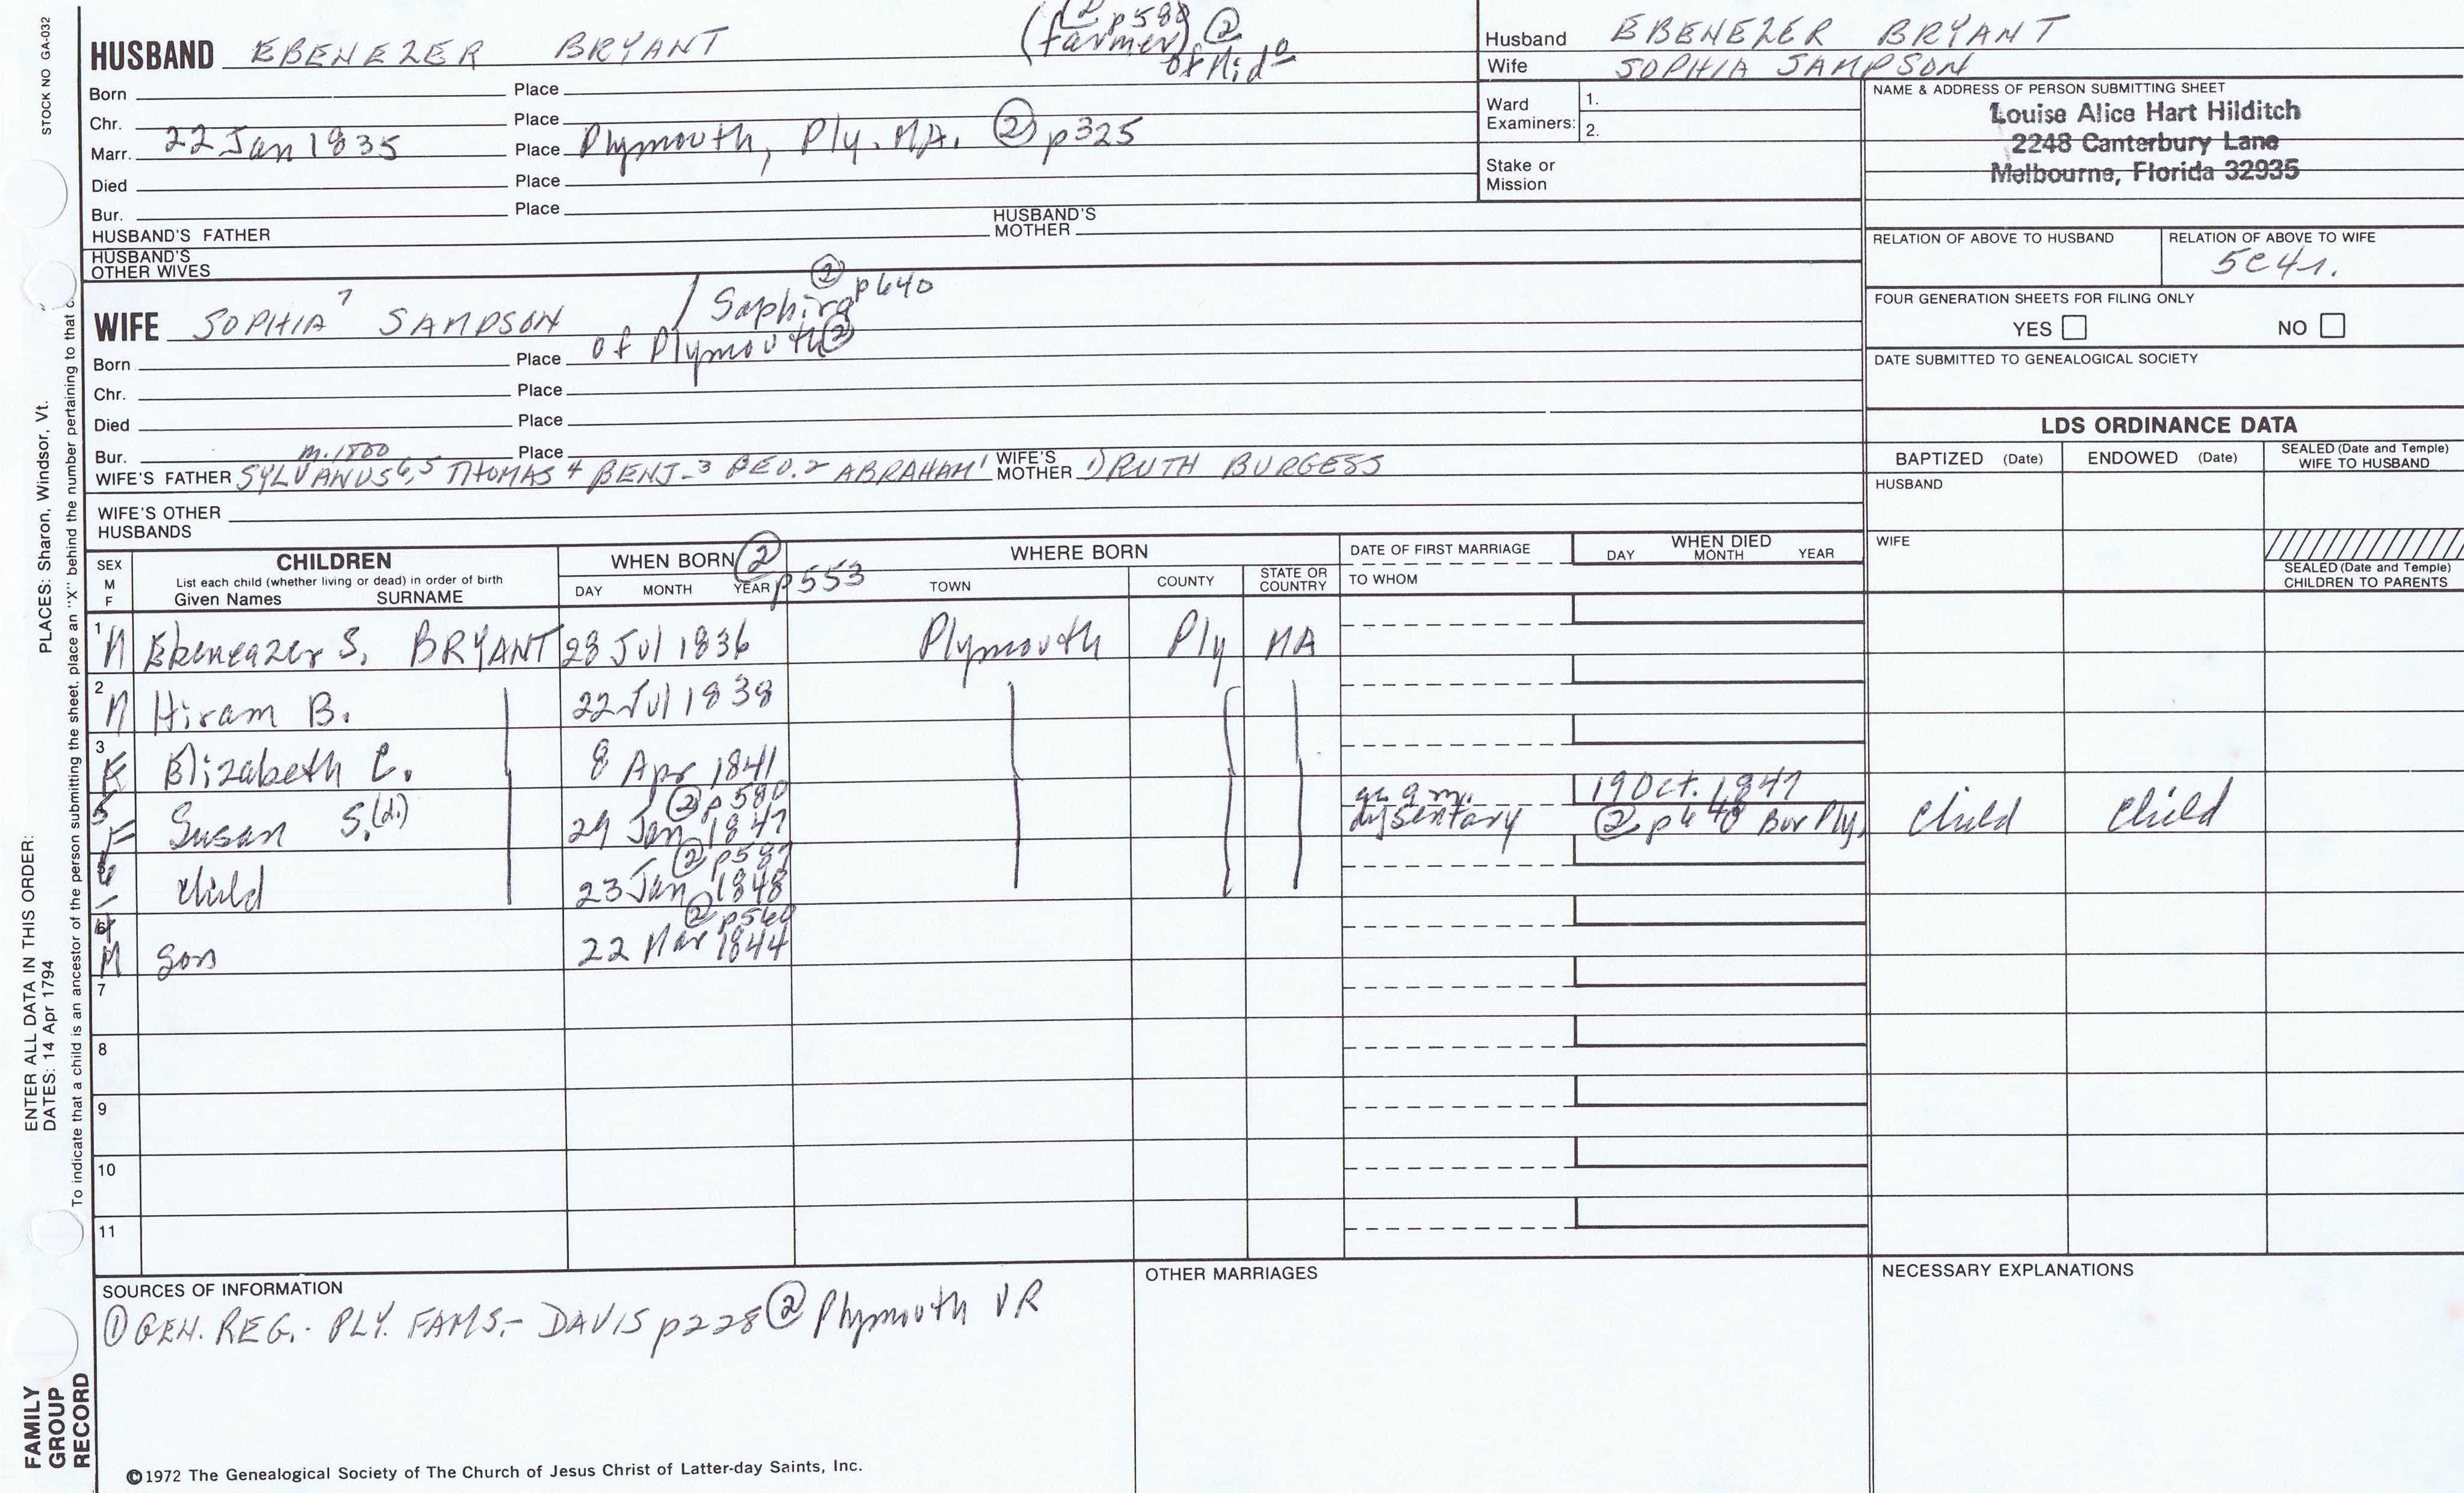 STOCK NO GA-032
PLACES: Sharon, Windsor, Vt.
ENTER ALL DATA IN THIS ORDER:
DATES: 14 Apr 1794
To indicate that a child is an ancestor of the person submitting the sheet, place an "X" behind the number pertaining to that c
FAMILY
GROUP
RECORD
HUSBAND EBENEZER BRYANT
p580 ②
(farmer)
of Mido
Born Place
Chr. Place
Marr. 22 Jan 1835 Place Plymouth, Ply. MA. ② p325
Died Place
Bur. Place
HUSBAND'S FATHER HUSBAND'S MOTHER
HUSBAND'S
OTHER WIVES
WIFE SOPHIA 7 SAMPSON / Saphira ② p640
Born Place of Plymouth ②
Chr. Place
Died Place
Bur. Place
m. 1800
WIFE'S FATHER SYLVANUS 6,5 THOMAS 4 BENJ-3 GEO.2 ABRAHAM 1 WIFE'S MOTHER 1) RUTH BURGESS
WIFE'S OTHER
HUSBANDS
Husband EBENEZER BRYANT
Wife SOPHIA SAMPSON
Ward
Examiners: 1.
2.
Stake or
Mission
NAME & ADDRESS OF PERSON SUBMITTING SHEET
Louise Alice Hart Hilditch
2248 Canterbury Lane
Melbourne, Florida 32935
RELATION OF ABOVE TO HUSBAND RELATION OF ABOVE TO WIFE
5C4r.
FOUR GENERATION SHEETS FOR FILING ONLY
YES NO
DATE SUBMITTED TO GENEALOGICAL SOCIETY
LDS ORDINANCE DATA
BAPTIZED (Date) ENDOWED (Date) SEALED (Date and Temple)
WIFE TO HUSBAND
HUSBAND
WIFE
SEALED (Date and Temple)
CHILDREN TO PARENTS
SEX
M
F
CHILDREN
List each child (whether living or dead) in order of birth
Given Names SURNAME
WHEN BORN ② p553
DAY MONTH YEAR
WHERE BORN
TOWN COUNTY STATE OR COUNTRY
DATE OF FIRST MARRIAGE
TO WHOM
WHEN DIED
DAY MONTH YEAR
1 M Ebeneazer S. BRYANT 28 Jul 1836 Plymouth Ply MA
2 M Hiram B. 22 Jul 1838
3 F Elizabeth C. 8 Apr 1841
5 F Susan S.(d.) ② p580 29 Jan 1847 ae 9 m. dysentary 19 Oct. 1847 ② p640 Bur Ply. Child Child
child ② p587 23 Jan 1848
M son ② p560 22 Mar 1844
7
8
9
10
11
SOURCES OF INFORMATION
① GEN. REG.- PLY. FAMS.- DAVIS p228 ② Plymouth VR
OTHER MARRIAGES
NECESSARY EXPLANATIONS
©1972 The Genealogical Society of The Church of Jesus Christ of Latter-day Saints, Inc.